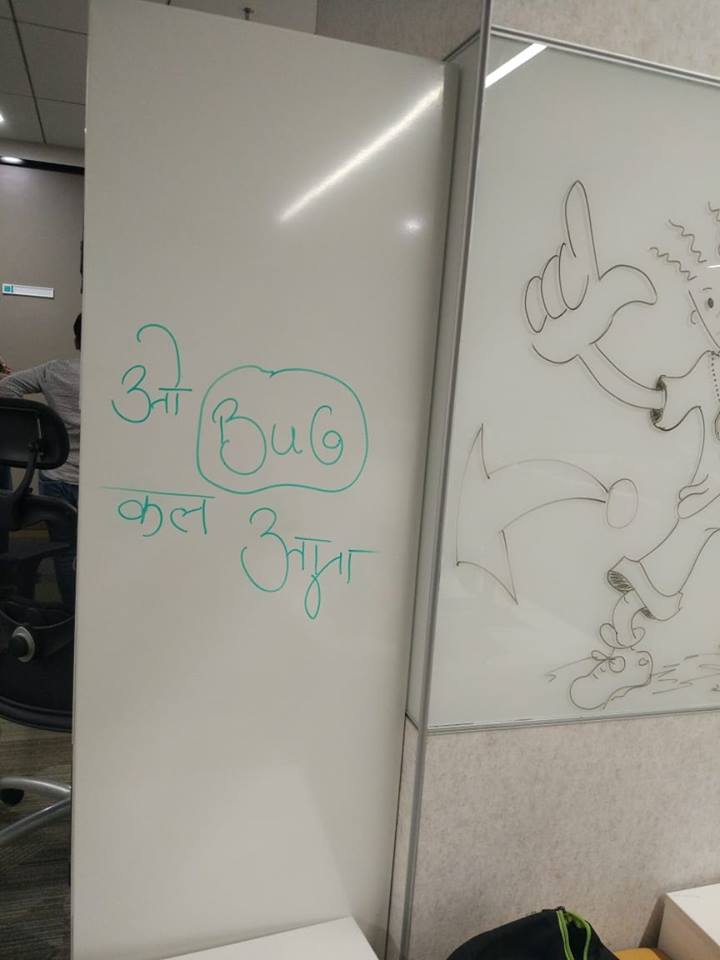 ओ BUG
कल आना